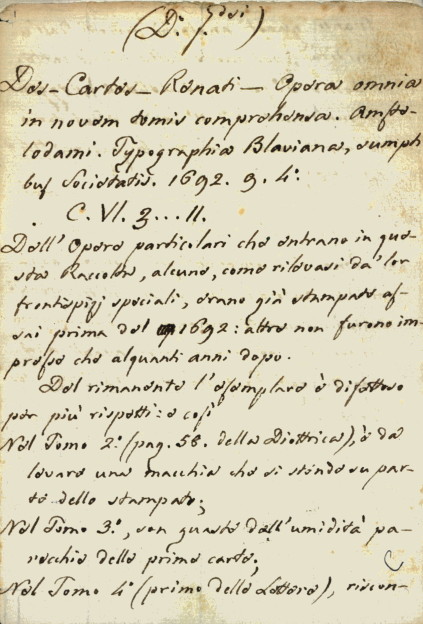 (D: 7.dsi)
Des-Cartes- Renati- Opera omnia
in novem tomis comprehensa. Amste-
lodami. Typographia Blaviana, sumpti
bus Societatis. 1692. 9. 4°:
C. VI. 3...11.
Dell' Opere particolari che entrano in que-
sta Raccolta, alcune, come rilevasi da' lor
frontispizj speciali, erano già stampate as-
sai prima del 1692: altre non furono im-
presse che alquanti anni dopo.
Del rimanente l'esemplare è difettoso
per più rispetti: e così
Nel Tomo 2.° (pag. 58. della Diottrica), è da
levare una macchia che si stende su par-
te dello stampato;
Nel Tomo 3.°, son guaste dall'umidità pa-
recchie delle prime carte;
Nel Tomo 4.° (primo delle Lettere), riscon-